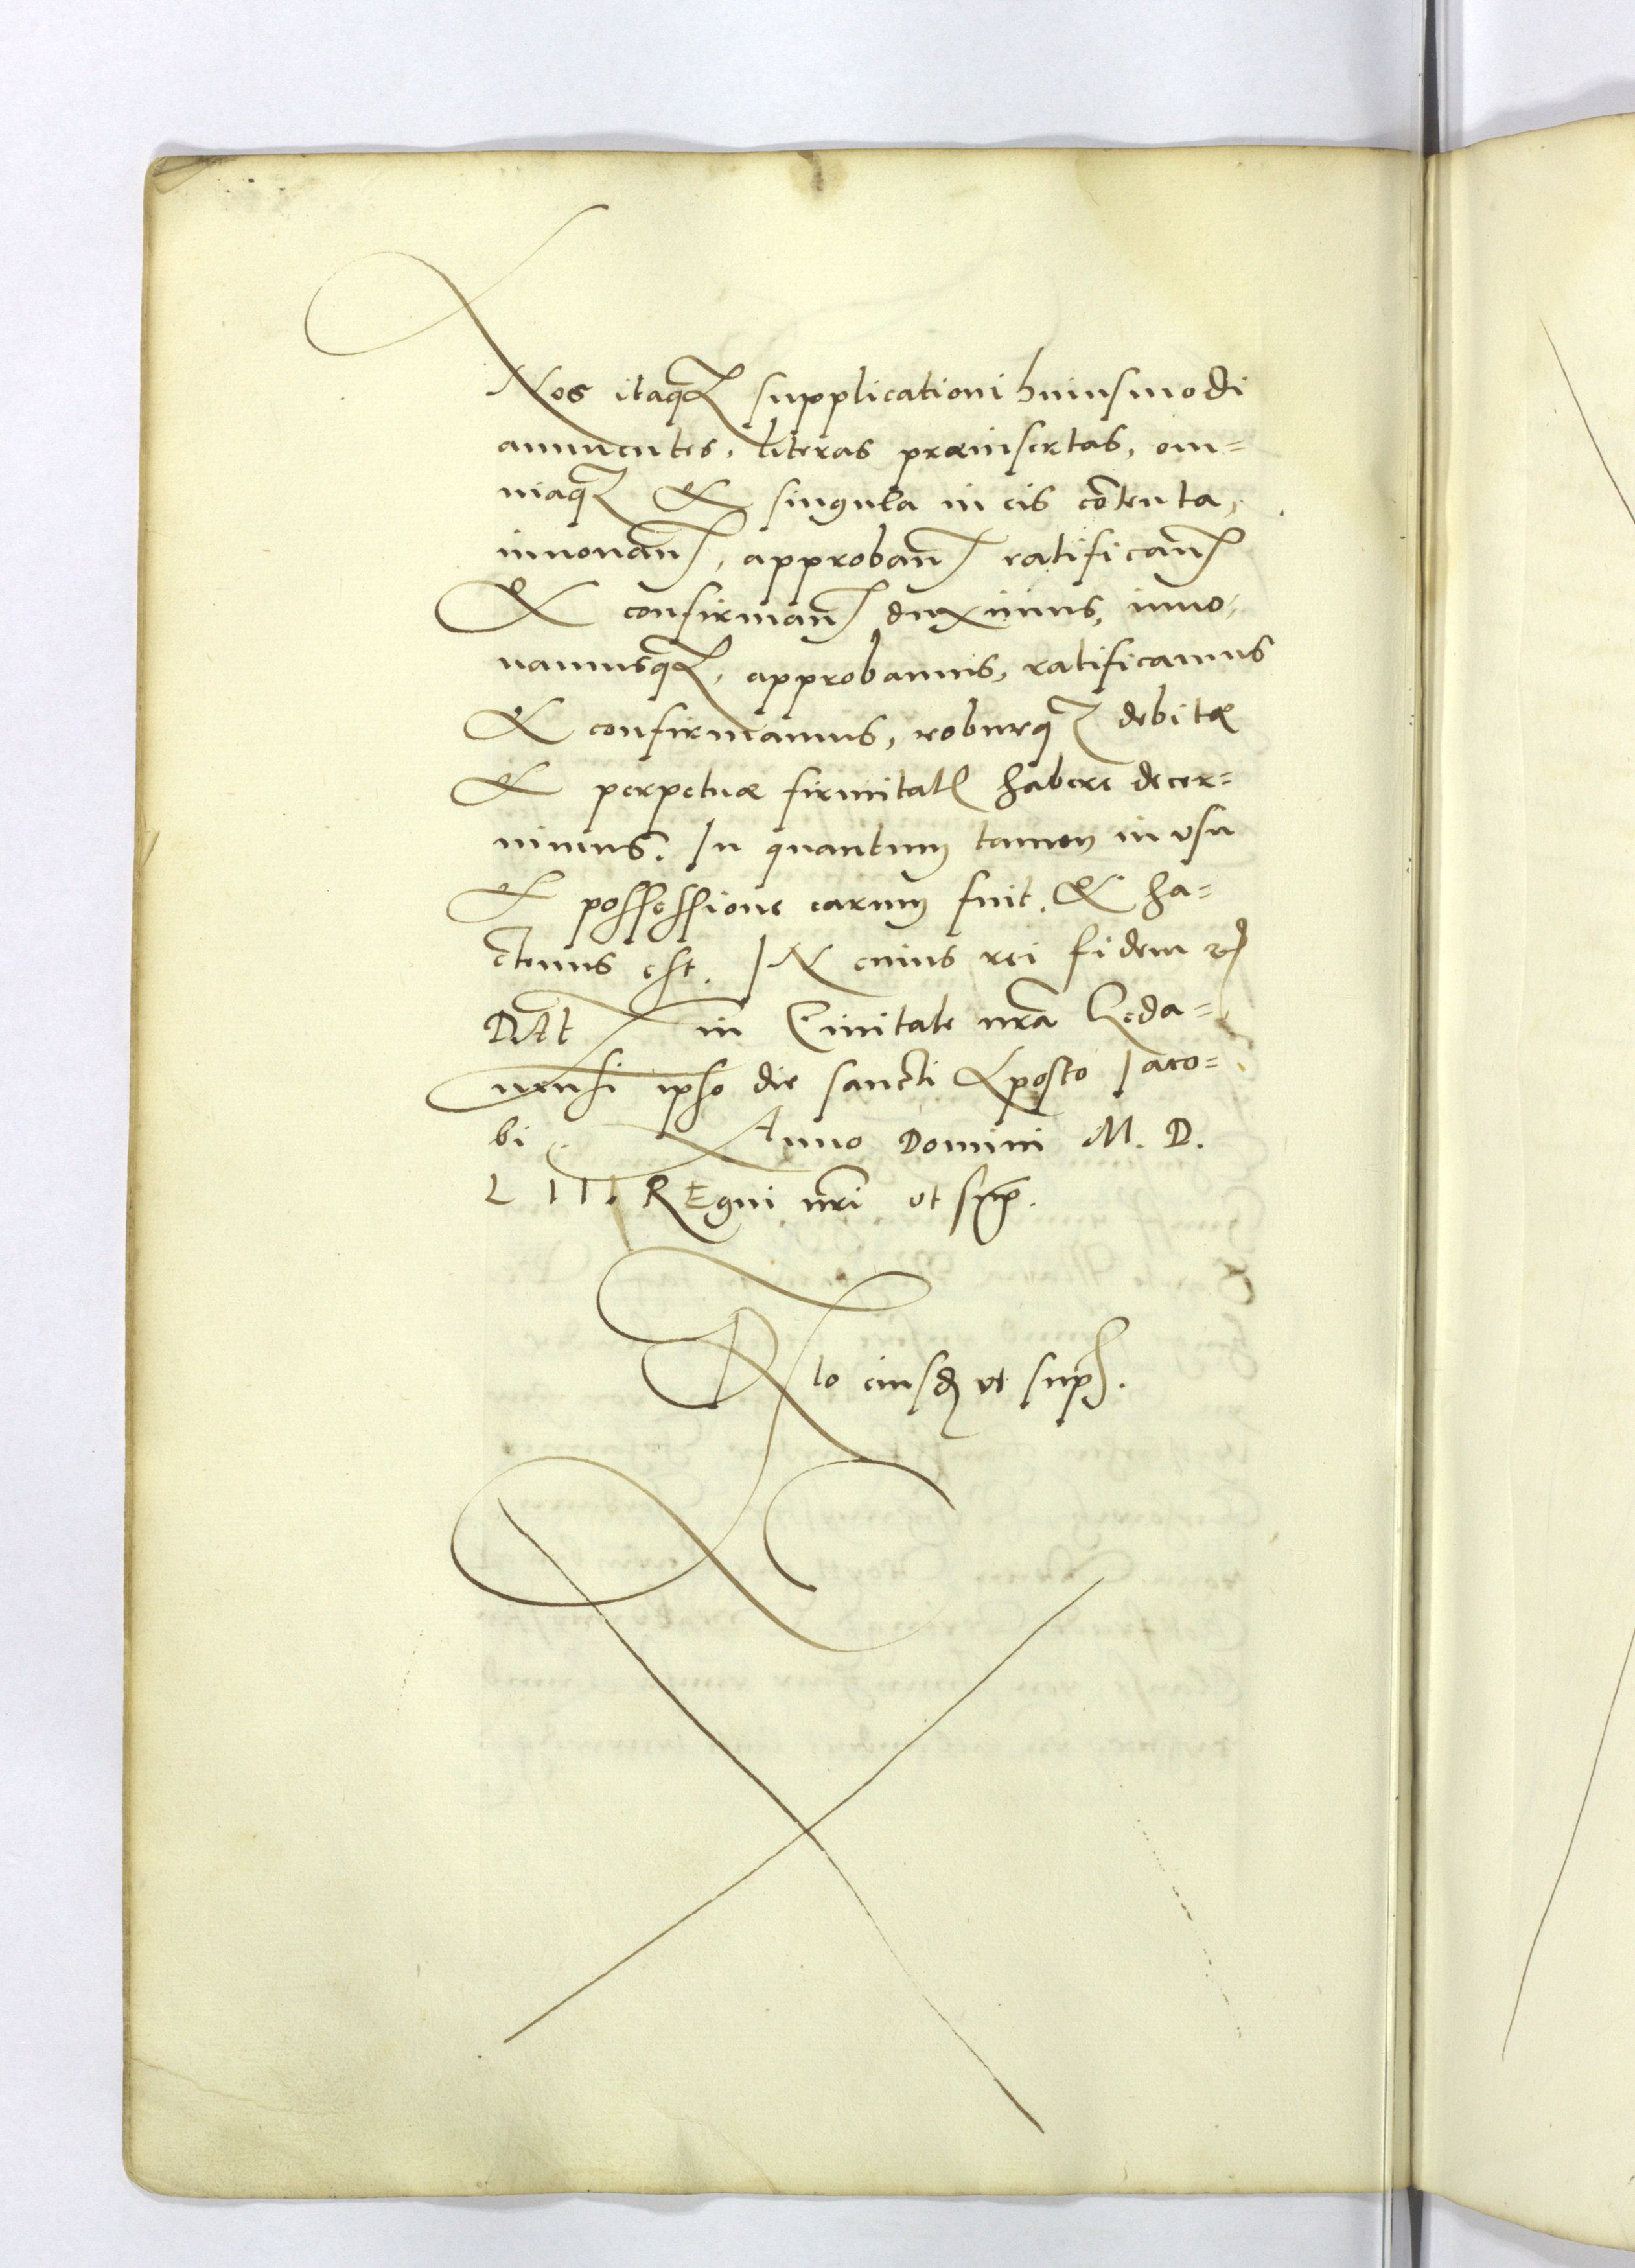 Nos itaqꝫ supplicationi huiusmodi
annuentes, literas præinsertas, om=
niaqꝫ & singula in eis cōtenta,
innouan̄, approban̄ ratifican̄
& confirman̄ duximus, inno,
uamusqꝫ, approbamus, ratificamus
& confirmamus, roburqꝫ debitæ
& perpetuæ firmitatꝭ habere decer=
nimus. In quantum tamen in vsu
& possessione earum fuit, & ha=
ctenus est. IN cuius rei fidem
DAt in Ciuitate nr̄a Geda=
nensi ipso die sancti Aposto Iaco=
bi Anno Domini M. D.
L III. REgni nr̄i vt sup̄.
R lo eiusdē vt sup̄.